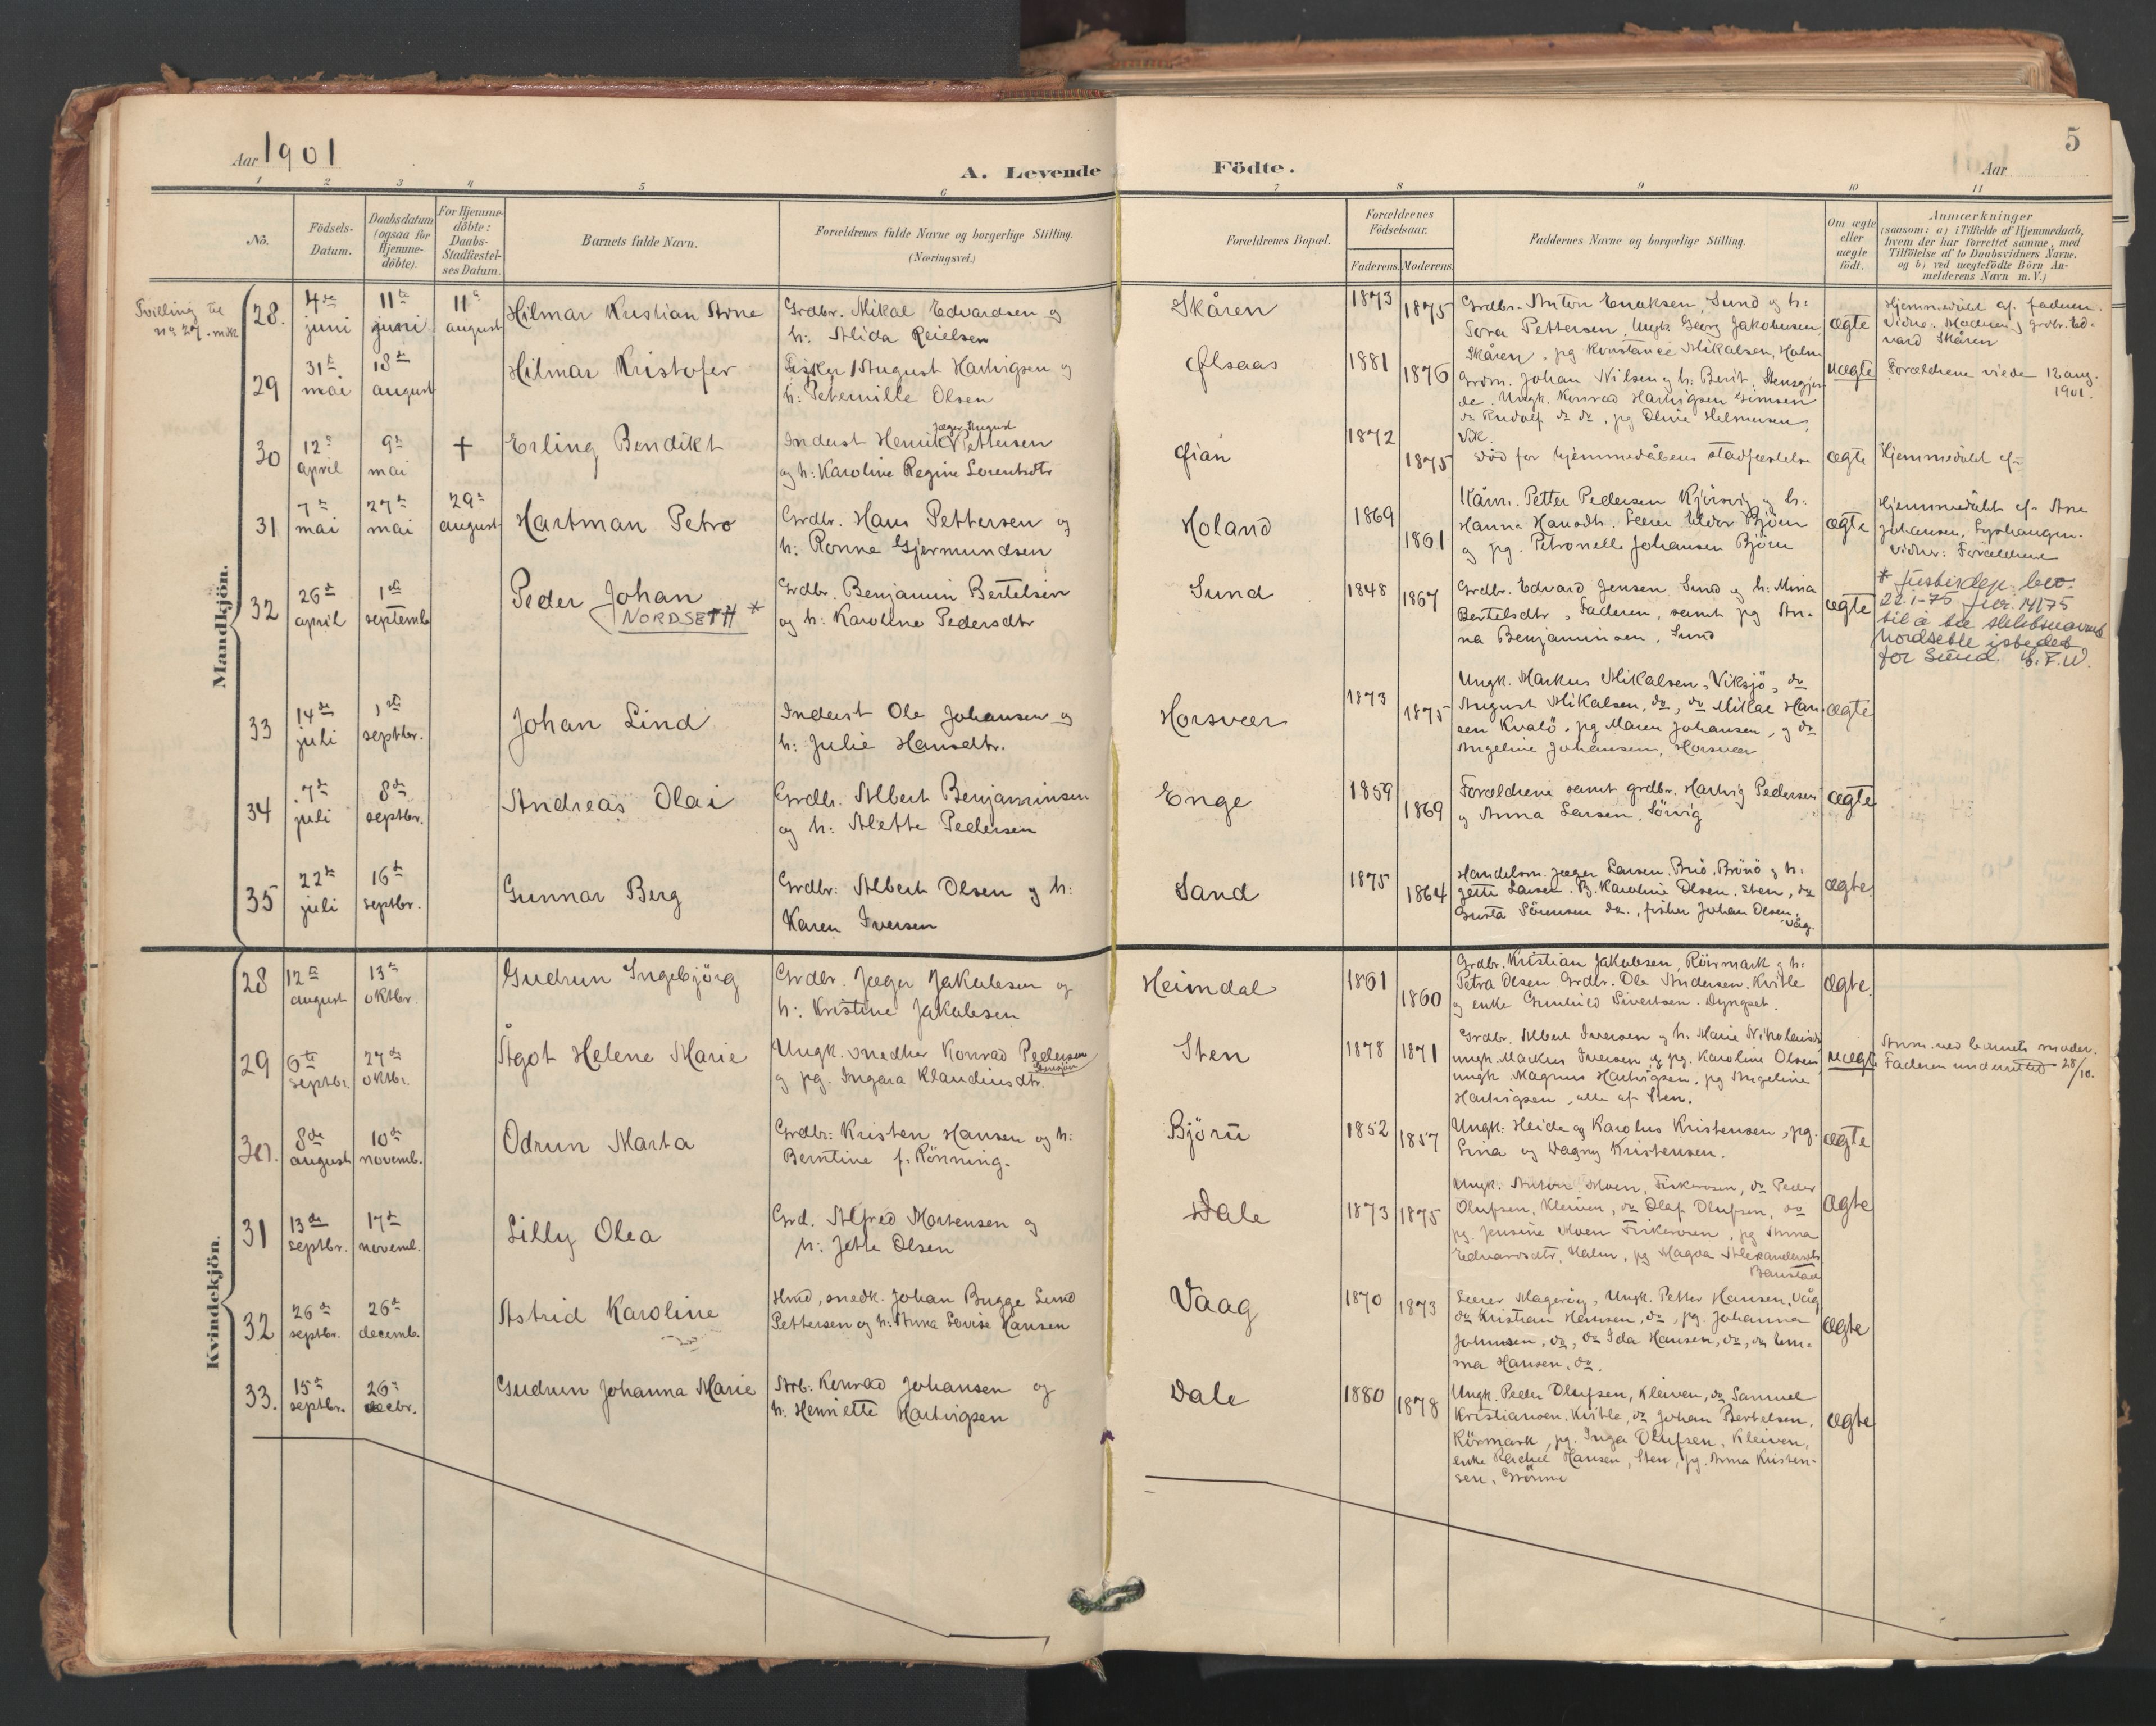 Aar 1901
A. Levende Födte.
Aar
5
1 2 3 4 5 6 7 8 9 10 11
No.
Födsels-
Datum.
Daabsdatum
(ogsaa for
Hjemme-
döbte).
For Hjemme-
döbte:
Daabs-
Stadfæstel-
ses Datum.
Barnets fulde Navn.
Forældrenes fulde Navne og borgerlige Stilling.
(Næringsvei.)
Forældrenes Bopæl.
Forældrenes
Födselsaar.
Faderens. Moderens.
Faddernes Navne og borgerlige Stilling.
Om ægte
eller
uægte
födt.
Anmærkninger
(saasom: a) i Tilfælde af Hjemmedaab,
hvem der har forrettet samme, med
Tilföielse af to Daabsvidners Navne.
og b) ved uægtefödte Börn An-
melderens Navn m. V.)
Mandkjön.
Tvilling til
no 27 - mdk
28. 4de juni 11te juni 11te august
Hilmar Kristian Arne
Grdbr. Mikal Edvardsen og
h: Alida Reielsen
Skåren
1873 1875
Grdbr. Anton Enoksen, Sund og h:
Tora Pettersen, Ungk. Georg Jakobsen,
Skåren, pg Konstance Mikalsen, Holm
ægte
Hjemmedöbt af faderen.
Vidne: Moderen og grdbr. Ed-
vard Skåren
29 31te mai 18de august
Hilmar Kristofer
Fisker August Hartvigsen og
h: Peternille Olsen
Ølsaas
1881 1876
Grdm. Johan Nilsen og h: Berit, Stensgjer-
de. Ungk. Konrad Hartvigsen Simsen
do Rudolf do do, pg Oline Helmersen,
Vik.
uægte
Forældrene viede 12 aug.
1901.
30 12te april 9de mai †
Erling Bendikt
Inderst Henrik Jæger August Pettersen
og h: Karoline Regine Lorentsdtr
Øian
1872 1875
Död för hjemmedåbens stadfæstelse
ægte
Hjemmedöbt af
31 7de mai 27de mai 29de august
Hartman Petro
Grdbr. Hans Pettersen og
h: Ronna Gjermundsen
Holand
1869 1861
Kårm. Petter Pedersen Kjörsvig og h:
Hanna Hansdtr. Lærer Eldor Björn
og pg. Petronelle Johansen Björn
ægte
Hjemmedöbt af Ane
Johansen,
Vidner: Forældrene
32 26de april 1ste septemb.
Peder Johan
NORDSETH *
Grdbr. Benjamin Bertelsen
og h: Karoline Pedersdtr
Sund
1848 1867
Grdbr. Edvard Jensen Sund og h: Mina
Bertelsdtr, Faderen, samt pg An-
na Benjaminsen, Sund
ægte
* Justisdep. bev.
22.1-75 jnr. 141/75
til å ta slektsnavnet
Nordseth istedet
for Sund. E.F.W.
33 14de juli 1ste septbr.
Johan Lind
Inderst Ole Johansen og
h: Julie Hansdtr.
Horsvær
1873 1875
Ungk. Markus Mikalsen, Viksjö, do
August Mikalsen, do, do Mikal Han-
sen Kvalö, pg Maren Johansen, og do
Angeline Johansen, Horsvær
ægte
34 7de juli 8de septbr.
Andreas Olai
Grdbr. Albert Benjaminsen
og h: Alette Pedersen
Enge
1859 1869
Forældrene samt grdbr. Hartvig Pedersen
og Anna Larsen, Sörvig
ægte
35 22de juli 16de septbr.
Gunnar Berg
Grdbr: Albert Olsen og h:
Karen Iversen
Sand
1875 1864
Handelsm. Jæger Larsen, Brönö og h:
Jette Larsen. Pg. Karoline Olsen, Sten, do
Gusta Sörensen do., fisker Johan Olsen,
Våg.
ægte
Kvindekjön.
28 12te august 13de oktbr.
Gudrun Ingebjörg
Grdbr. Jæger Jakobsen og
h: Kristine Jakobsen
Heimdal
1861 1860
Grdbr. Kristian Jakobsen, Rörmark og h:
Petra Olsen. Grdbr. Ole Andersen, Kvitle
og enke Gunhild Sivertsen. Dyngset.
ægte.
29 6te septbr. 27de oktbr.
Ågot Helene Marie
Ungk. snedker Konrad Pedersen
og pg. Ingara Klaudiusdtr.
Sten
1878 1871
Grdbr. Albert Iversen og h. Marie Nikolaisdtr
ungk. Markus Iversen og pg. Karoline Olsen
ungk. Magnus Hartvigsen, pg Angeline
Hartvigsen, alle af Sten.
uægte
Anm. ved barnets moder.
Faderen underrettet 28/10.
30. 8de august 10de novemb.
Odrun Marta
Grdbr: Kristen Hansen og h:
Berntine f. Rönning.
Björn
1852 1857
Ungk. Heide og Karolus Kristensen, pg.
Lina og Dagny Kristensen.
ægte
31 13de septbr. 17de novemb.
Lilly Olea
Grd. Alfred Mortensen og
h: Jette Olsen
Dale
1873 1875
Ungk. Anton Moen, Fiskerosen, do Peder
Olufsen, Kleiven, do Olaf Olufsen, do
pg. Jensine Moen Fiskerosen, pg Anna
Edvardsdtr, Holm, pg Magda Aleksandersdtr
Baustad
ægte
32 26de septbr. 26de decemb.
Astrid Karoline
Hmd, snedk. Johan Bugge Lund
Pettersen og h: Anna Lovise Hansen
Vaag
1870 1873
Lærer Mageröy, Ungk. Petter Hansen, Våg,
do Kristian Hansen, do, pg. Johanna
Johnsen, do, do Ida Hansen, do, do Em-
ma Hansen, do.
ægte
33. 15de septbr. 26de decbr.
Gudrun Johanna Marie
Arb: Konrad Johansen og
h. Henriette Hartvigsen
Dale
1880 1878
Ungk. Peder Olufsen, Kleiven, do Samuel
Kristiansen, Kvitle, do Johan Bertelsen,
Rörmark, pg. Inga Olufsen, Kleiven,
enke Rachel Hansen, Sten, pg. Anna Kristen-
sen, Grönmo
ægte